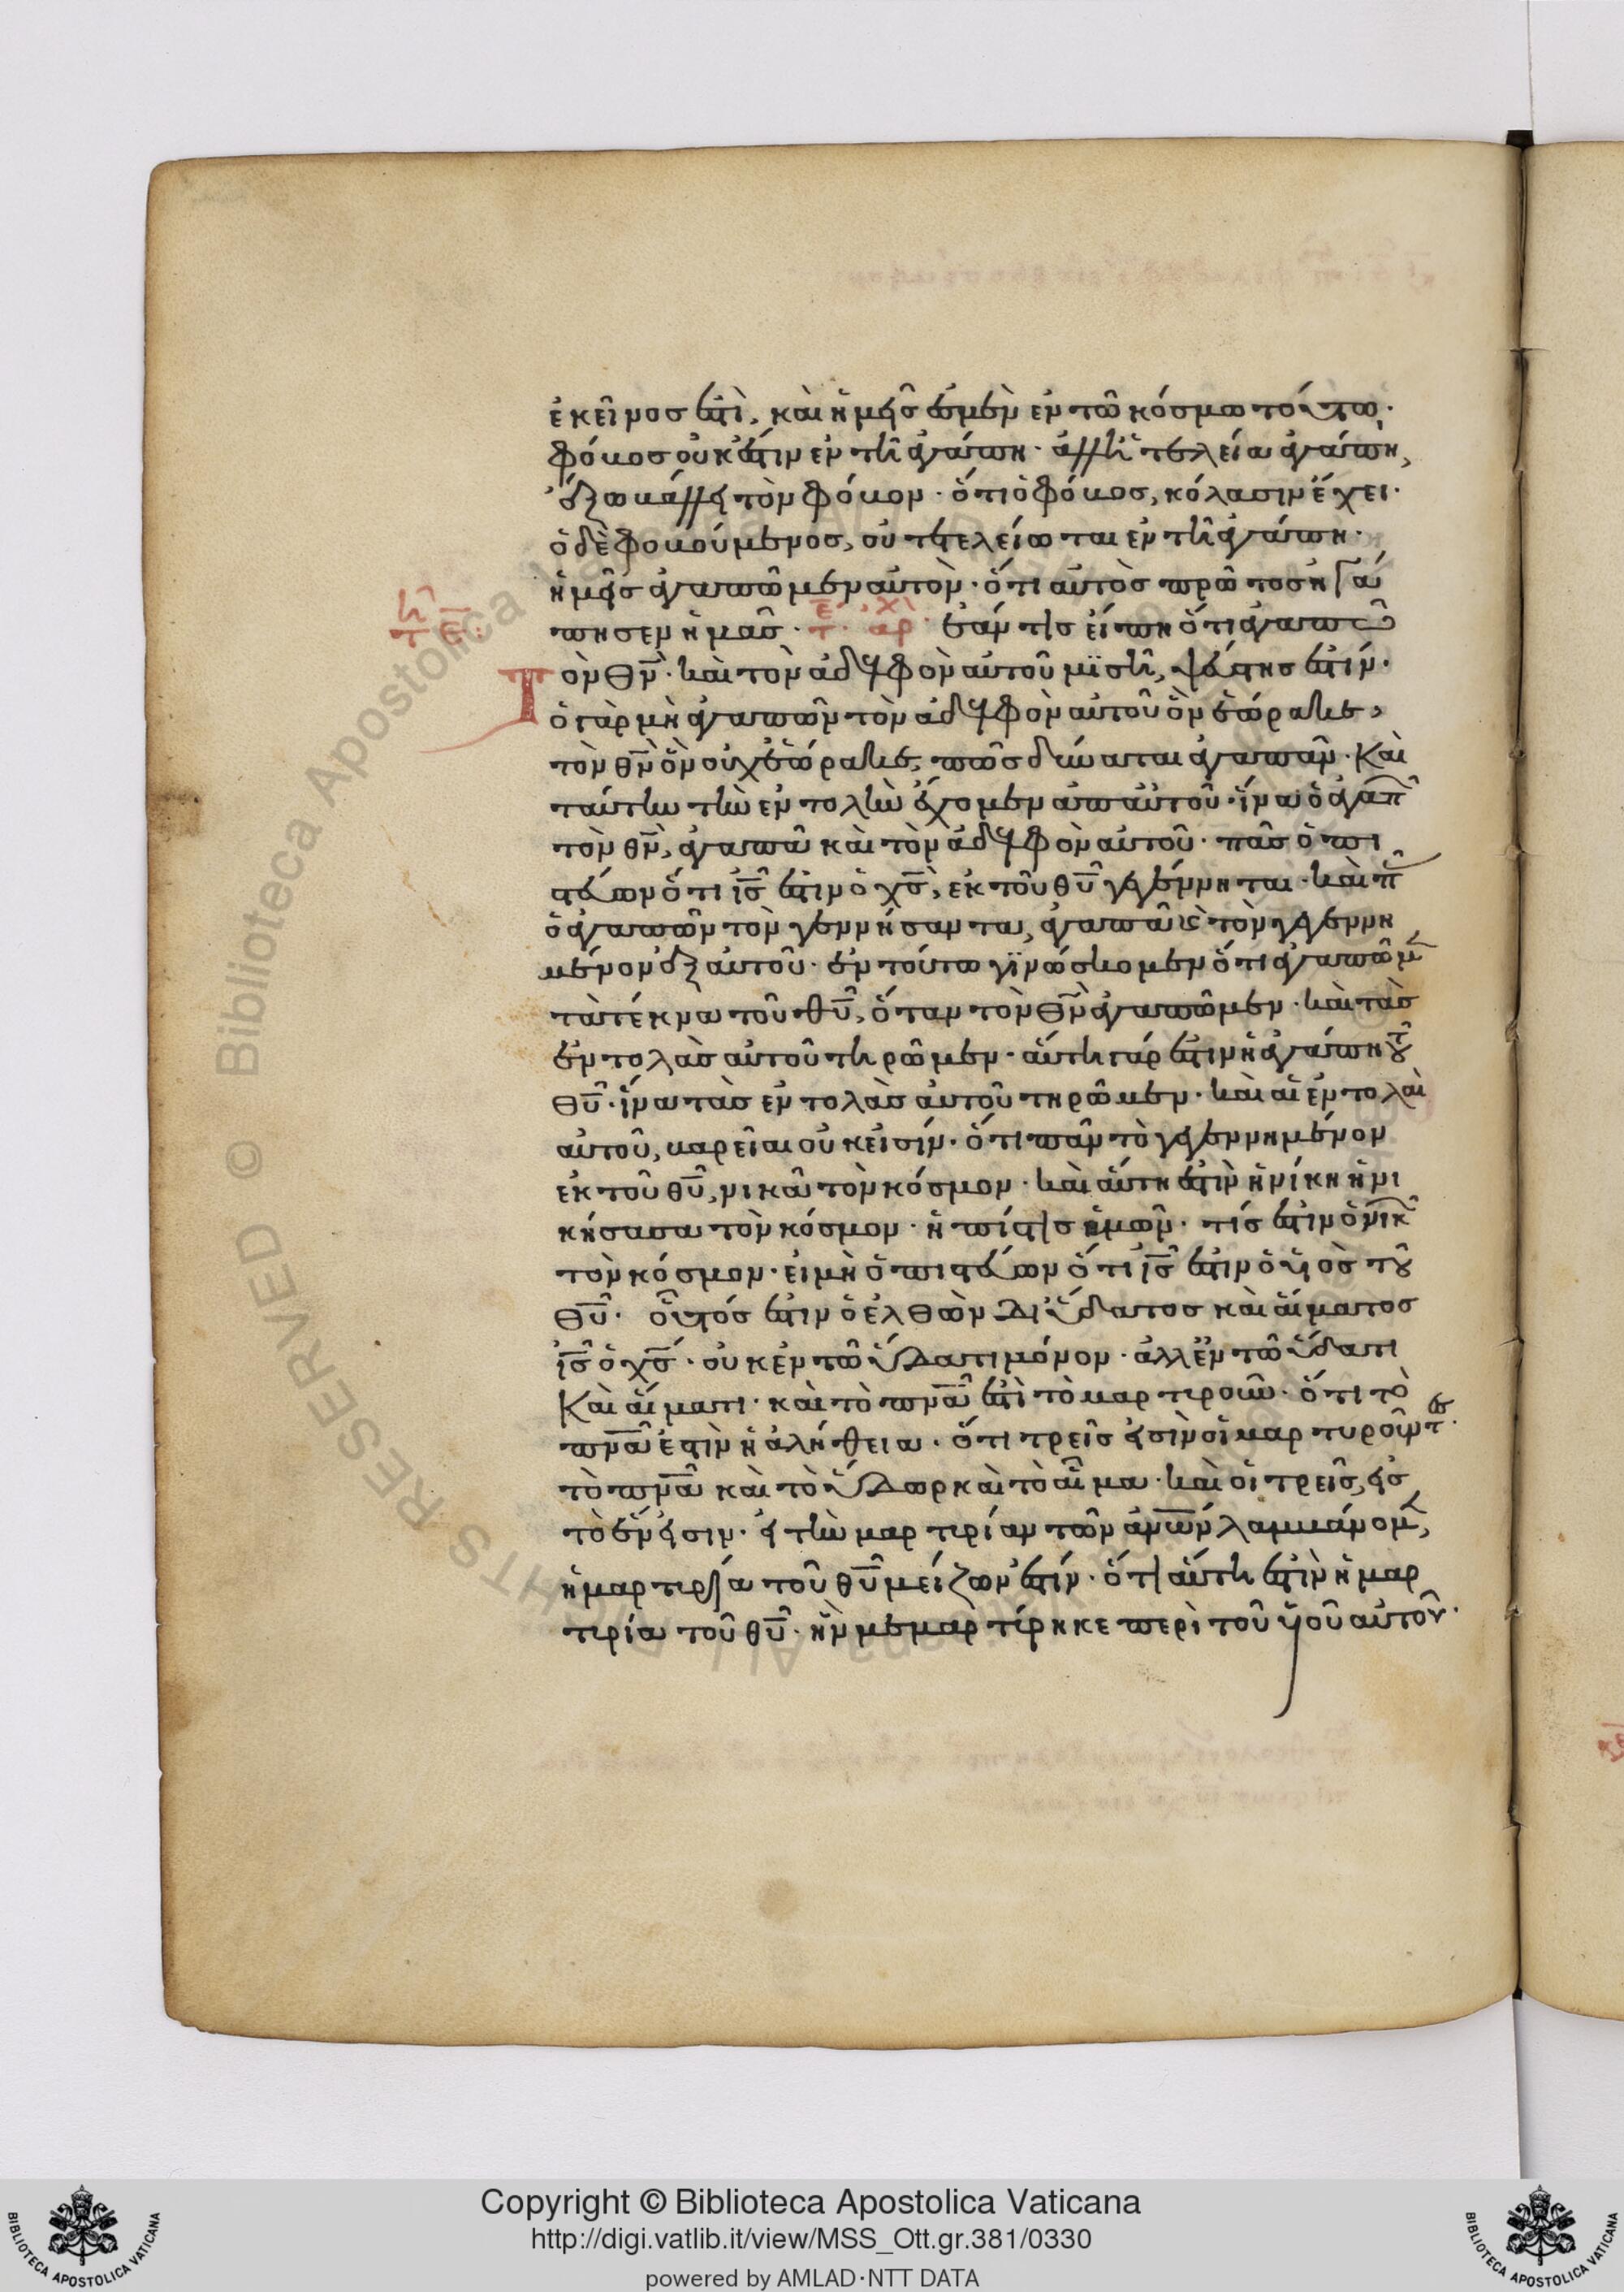 ἐκεῖνος ἐστὶ, καὶ ἡμεῖς ἐσμὲν ἐν τῶ κόσμω τούτω·
φόβος οὐκ ἔστιν ἐν τῆ ἀγάπη· ἀλλ' ἡ τελεία ἀγάπη,
ἔξω βάλλει τὸν φόβον· ὅτι ὁ φόβος, κόλασιν ἔχει·
ὁ δὲ φοβούμενος, οὐ τετελείωται ἐν τῆ ἀγάπη·
ἡμεῖς ἀγαπῶμεν αὐτὸν· ὅτι αὐτὸς πρῶτος ἠγά
πησεν ἡμᾶς· ἐάν τις είπη ὅτι ἀγαπῶ
Τὸν θν̅· καὶ τὸν ἀδελφὸν αὐτοῦ μϊσῆ, ψεύστης ἐστίν·
ὁ γὰρ μὴ ἀγαπῶν τὸν ἀδελφὸν αὐτοῦ ὃν ἑώρακε,
τὸν θν̅ ὃν οὐχ ἑώρακε, πῶς δύναται ἀγαπᾶν· Καὶ
ταύτην τὴν ἐντολὴν ἔχομεν ἀπ αὐτοῦ· ἵνα ὁ ἀγαπ
τὸν θν̅, ἀγαπᾶ καὶ τὸν ἀδελφὸν αὐτοῦ· πᾶς ὁ πι
στεύων ὅτι ις̅ ἐστιν ὁ χς̅, ἐκ τοῦ θυ̅ γεγέννηται· καὶ π
ὁ ἀγαπῶν τὸν γεννήσαντα, ἀγαπᾶ κ τὸν γεγεννη
μένον ἐξ αὐτοῦ· ἐν τούτω γϊνώσκομεν ὅτι ἀγαπῶμ
τὰ τέκνα τοῦ θυ̅, ὅταν τὸν θν̅ ἀγαπῶμεν· καὶ τὰς
ἐντολὰς αὐτοῦ τηρῶμεν· αύτη γάρ ἐστιν ἡ ἀγάπη τοῦ
θυ̅· ἵνα τὰς ἐντολὰς αὐτοῦ τηρῶμεν· καὶ αἱ ἐντολαὶ
αὐτοῦ, βαρεῖαι οὐκ εἰσίν· ὅτι πᾶν τὸ γεγεννημένον
ἐκ τοῦ θυ̅, νικᾶ τὸν κόσμον· καὶ αὕτη ἐστὶν ἡ νίκη ἡ νι
κήσασα τὸν κόσμον· ἡ πίστις ἡμῶν· τίς ἐστιν ὁ νικ
τὸν κόσμον· εἰ μὴ ὁ πιστεύων ὅτι ις̅ ἐστιν ὁ υἱὸς τοῦ
θυ̅· οὗτός ἐστιν ὁ ἐλθὼν δι ὕδατος καὶ αἵματος
ις̅ ὁ χς̅· οὐκ ἐν τῶ ὕδατι μόνον· ἀλλ ἐν τῶ ὕδατι
Καὶ αἵματι· καὶ τὸ πνα̅ ἐστὶ τὸ μαρτυροῦν· ὅτι τὸ
πνα̅ ἐστὶν ἡ ἀλήθεια· ὅτι τρεῖς εἰσὶν οἱ μαρτυροῦντες·
τὸ πνα̅ καὶ τὸ ὕδωρ καὶ τὸ αἷμα· καὶ οἱ τρεῖς, εἰς
τὸ ἕν εἰσιν· εἰ τὴν μαρτυρίαν τῶν ανω̅ν λαμβάνομ,
ἡ μαρτυρία τοῦ θυ̅ μείζων ἐστίν· ὅτι αύτη ἐστὶν ἡ μαρ
τυρία τοῦ θυ̅· ἣν μεμαρτύρηκε περὶ τοῦ υἱοῦ αὐτοῦ·
Copyright © Biblioteca Apostolica Vaticana
http://digi.vatlib.it/view/MSS_Ott.gr.381/0330
powered by AMLAD·NTT DATA